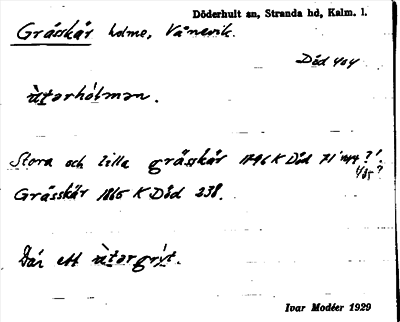 Döderhult sn, Stranda hd, Kalm. l.
Grässkär holme, Vånevik.
Död 404
ùtərhólmən.
Stora och Lilla grässkär 1796 K Död 71 ?!
1/85 ?
Grässkär 1865 K Död 238.
Där ett ùtərgrýt.
Ivar Modéer 1929